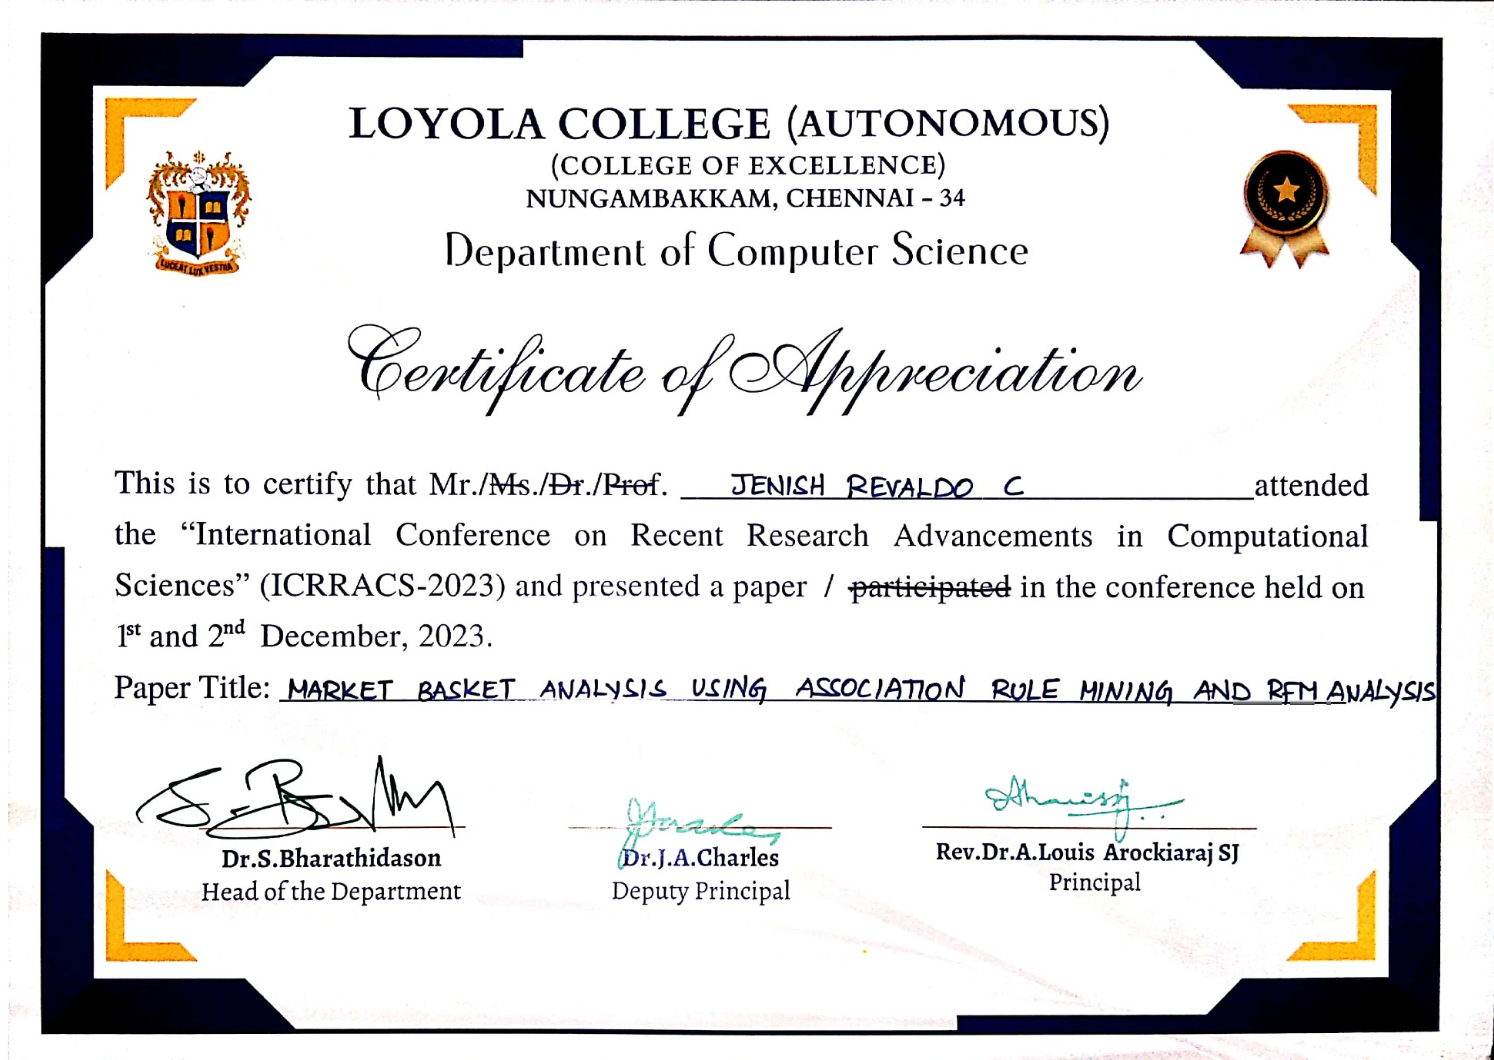 LOYOLA COLLEGE (AUTONOMOUS)
(COLLEGE OF EXCELLENCE)
NUNGAMBAKKAM, CHENNAI - 34
Department of Computer Science
LUCEAT LUX VESTRA
Certificate of Appreciation
This is to certify that Mr./Ms./Dr./Prof. JENISH REVALDO C attended
the “International Conference on Recent Research Advancements in Computational
Sciences” (ICRRACS-2023) and presented a paper / participated in the conference held on
1st and 2nd December, 2023.
Paper Title: MARKET BASKET ANALYSIS USING ASSOCIATION RULE MINING AND RFM ANALYSIS
Dr.S.Bharathidason
Head of the Department
Dr.J.A.Charles
Deputy Principal
Rev.Dr.A.Louis Arockiaraj SJ
Principal